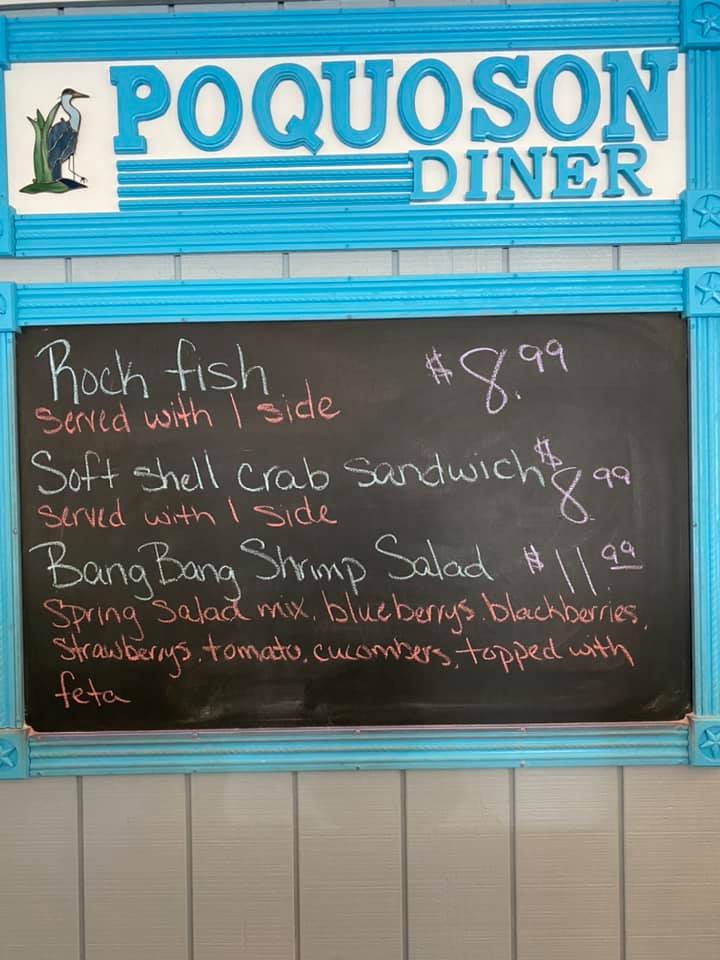 POQUOSON
DINER
Rock fish $8.99
Served with 1 side
Soft shell crab sandwich $8.99
Served with 1 side
Bang Bang Shrimp Salad $11 99
Spring Salad mix, blueberrys, blackberries,
Strawberrys, tomato, cucombers, topped with
feta